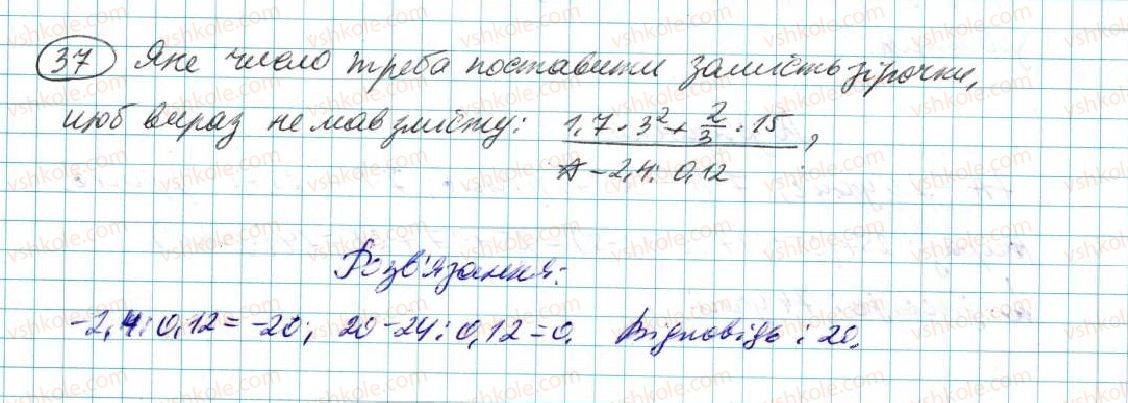 37 Яке число треба поставити замість зірочки,
щоб вираз не мав змісту: 1,7 * 3² + 2/3 : 15 ,
* - 2,4 : 0,12
Розв'язання:
-2,4 : 0,12 = -20; 20 - 24 : 0,12 = 0. Відповідь : 20.